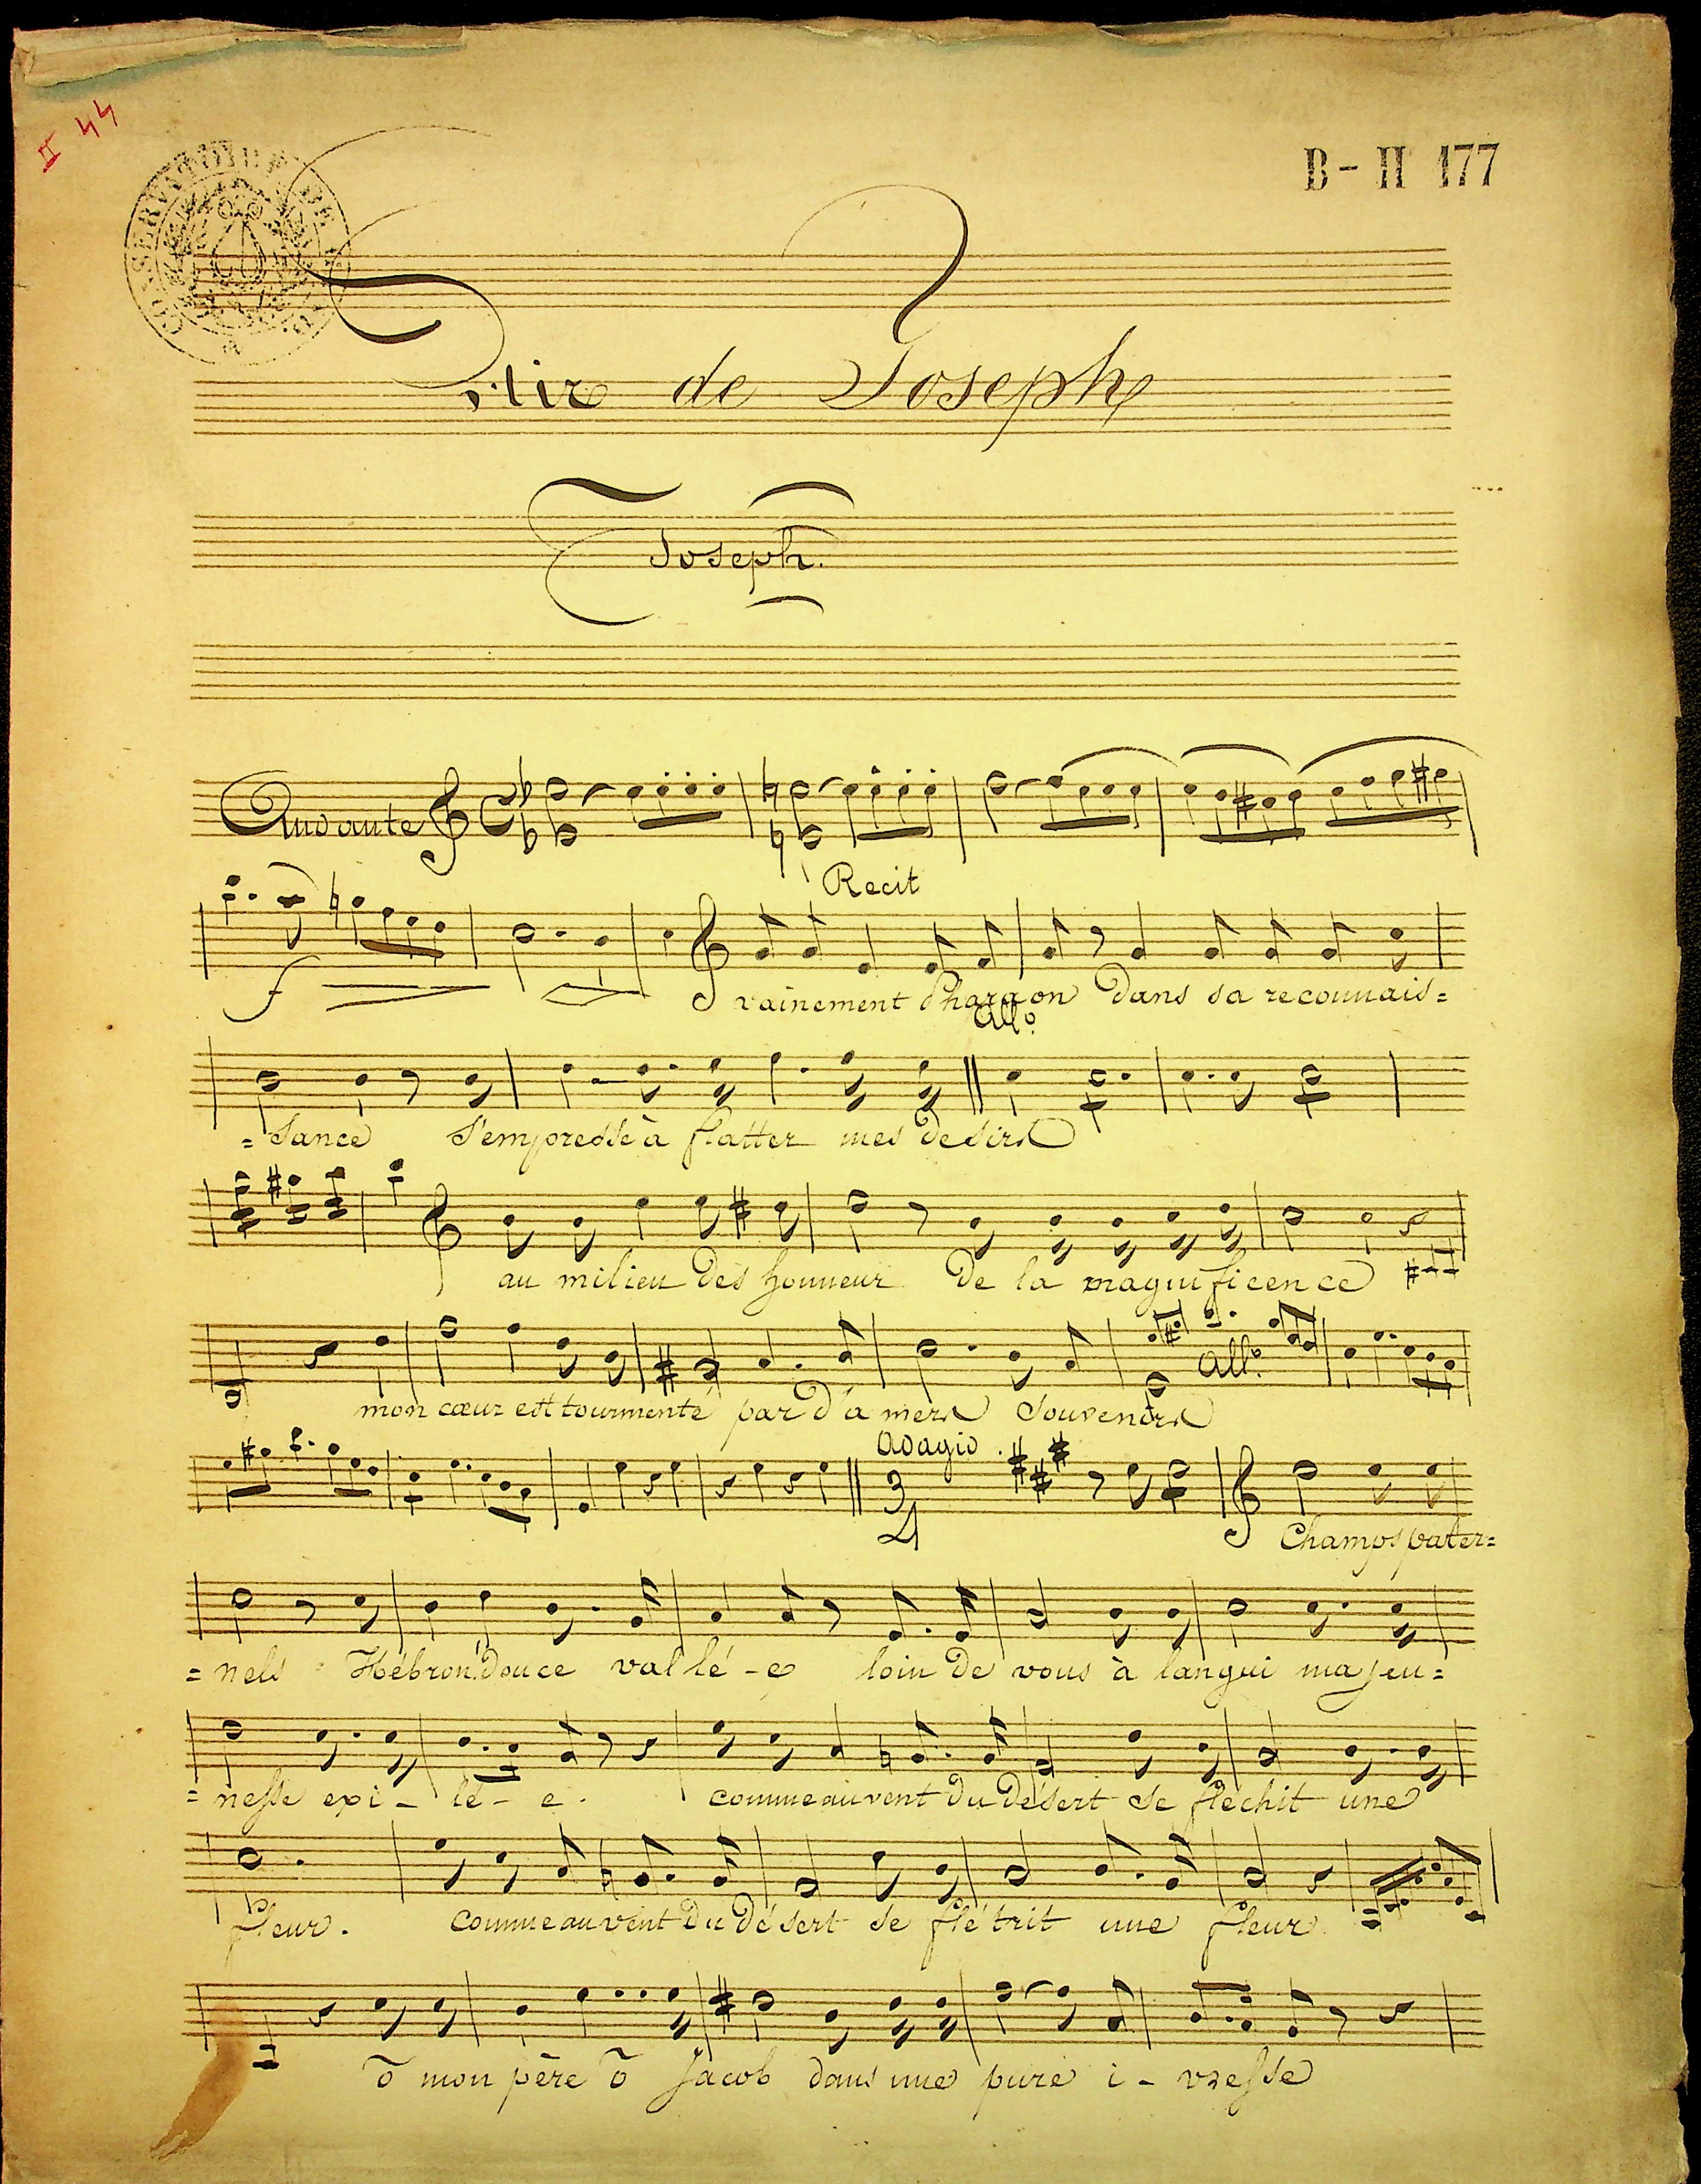 II 44
B - II 177
CONSERVATOIRE DE
Air de Joseph
Joseph.
Andante
Recit
f
vainement Pharaon dans sa reconnais=
All°
=sance s'empresse à flatter mes desirs
au milieu des honneur de la magnificence
All°
mon cœur est tourmenté par d'a mers souvenirs
adagio
3
4
Champs pater=
=nels Hébron, douce vallé-e loin de vous à langui ma jeu=
=nesse exi-lé-e. comme au vent du désert se fléchit une
fleur. comme au vent du désert se flétrit une fleur
ō mon père ō Jacob dans une pure i-vresse